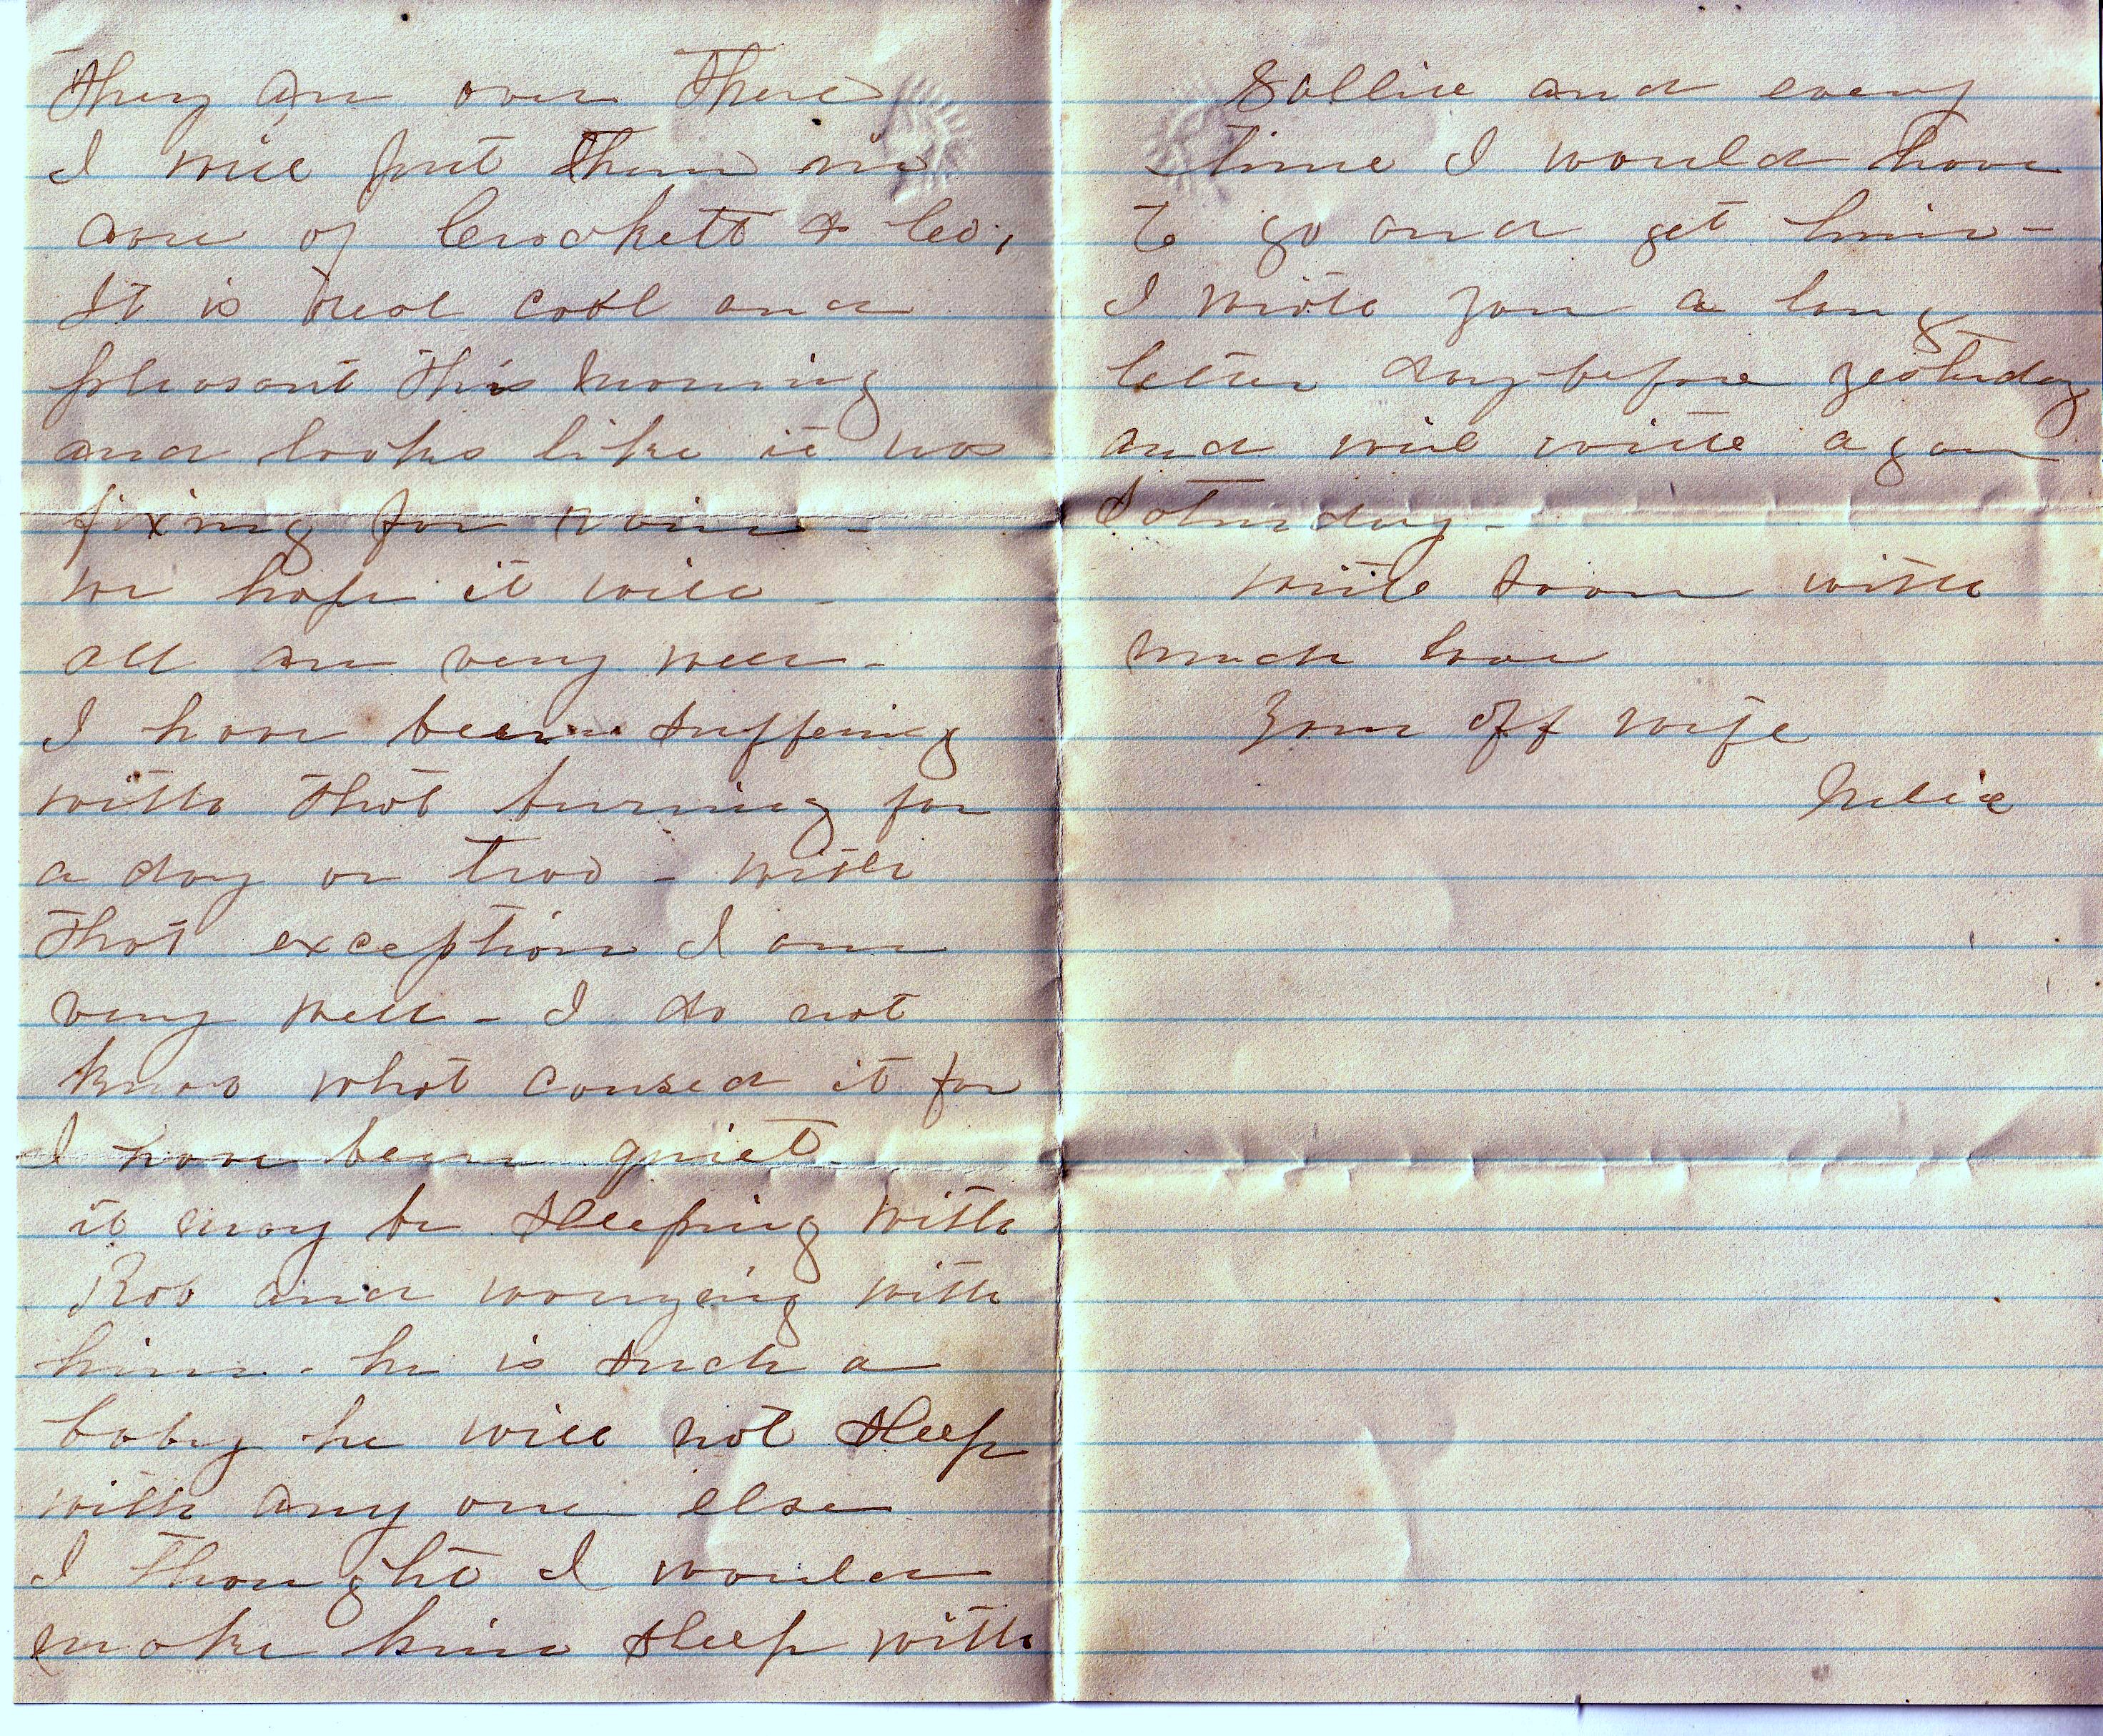 They are over there
I will put them in
care of Crockett & Co,
It is real cool and
pleasant this morning
and looks like it was
fixing for rain -
we hope it will -
all are very well -
I have been suffering
with that burning for
a day or two - with
that exception I am
very well - I do not
know what caused it for
I have been quiet -
it may be sleeping with
Rob and worrying with
him - he is such a
baby he will not sleep
with any one else
I thought I would
make him sleep with
Sallie and every
time I would have
to go and get him -
I wrote you a long
letter day before yesterday
and will write again
Saturday -
Write soon with
much love
Your aff wife